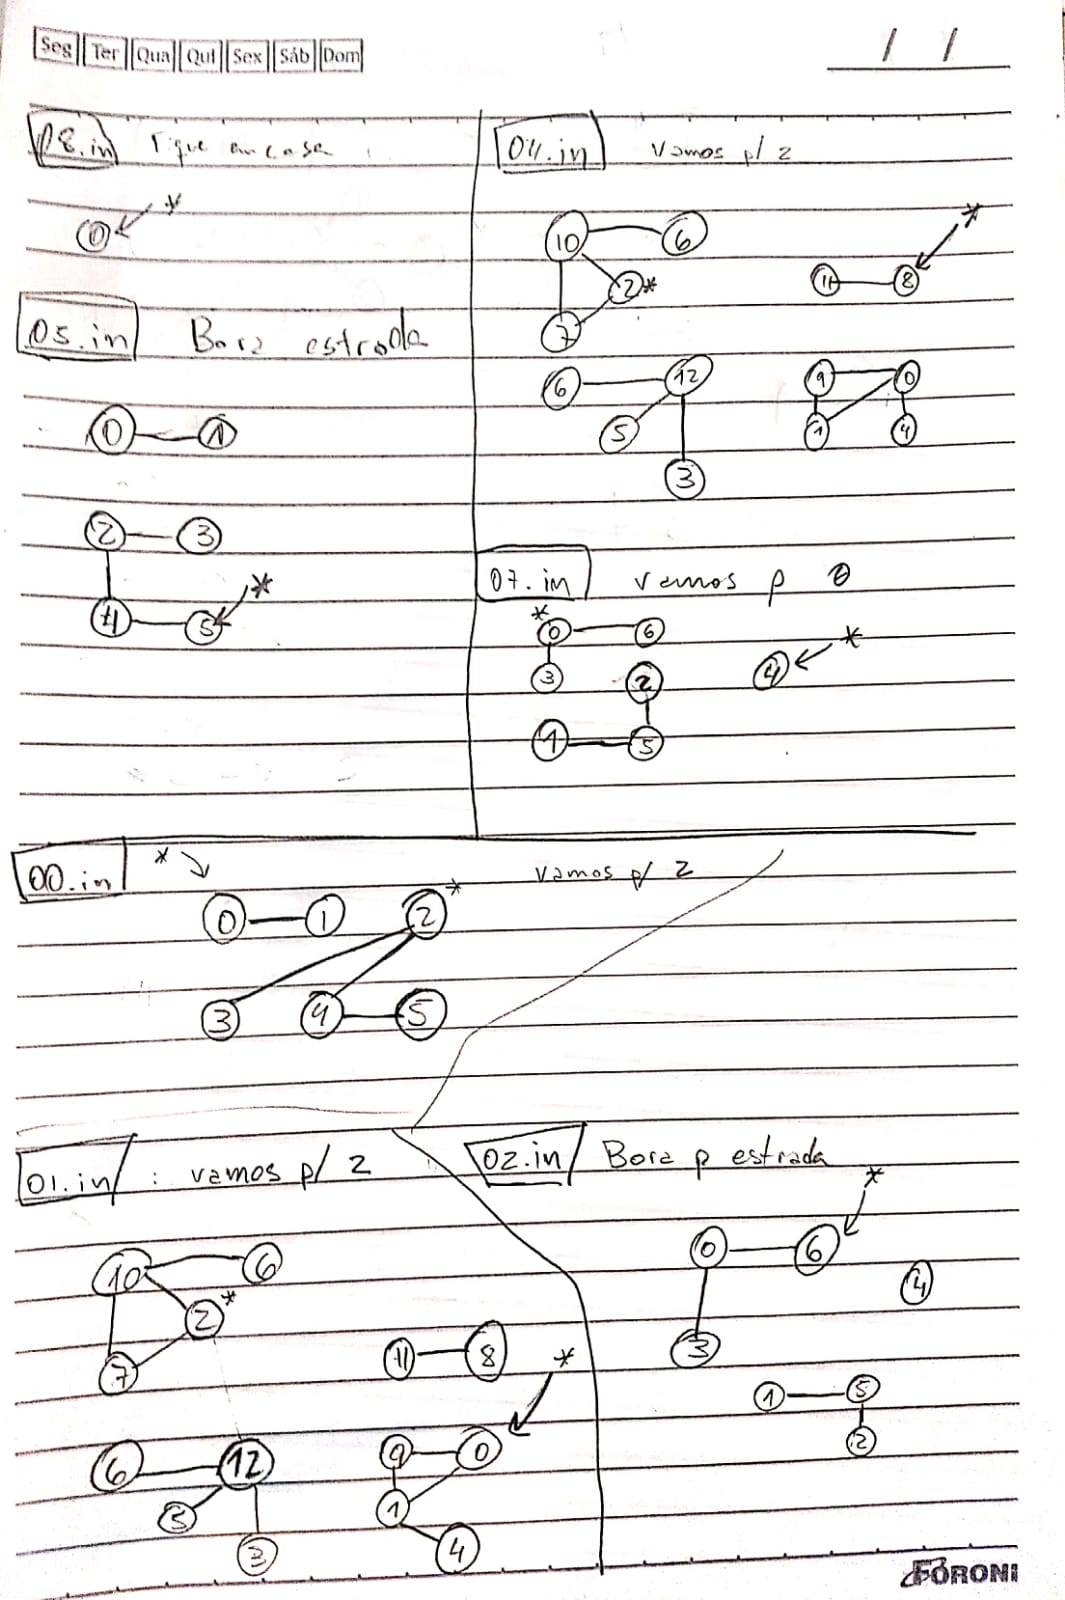 Seg Ter Qua Qui Sex Sáb Dom
/ /
08.in Fique em casa
0 *
05.in Bora estrada
0 1
2 3
4 5 *
04.in Vamos p/ 2
10 6
2 *
7
11 8 *
6 12
5
3
9 0
1 4
07.in vamos p 0
* 0 6
3 2
1 5
4 *
00.in * vamos p/ 2
0 1 2 *
3 4 5
01.in : vamos p/ 2
10 6
2 *
7
11 8
*
6 12
5
3
9 0
1
4
02.in Bora p estrada
*
0 6
4
3
1 5
2
FORONI